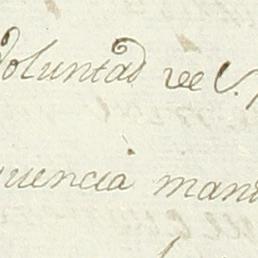 voluntad de S.
quencia man